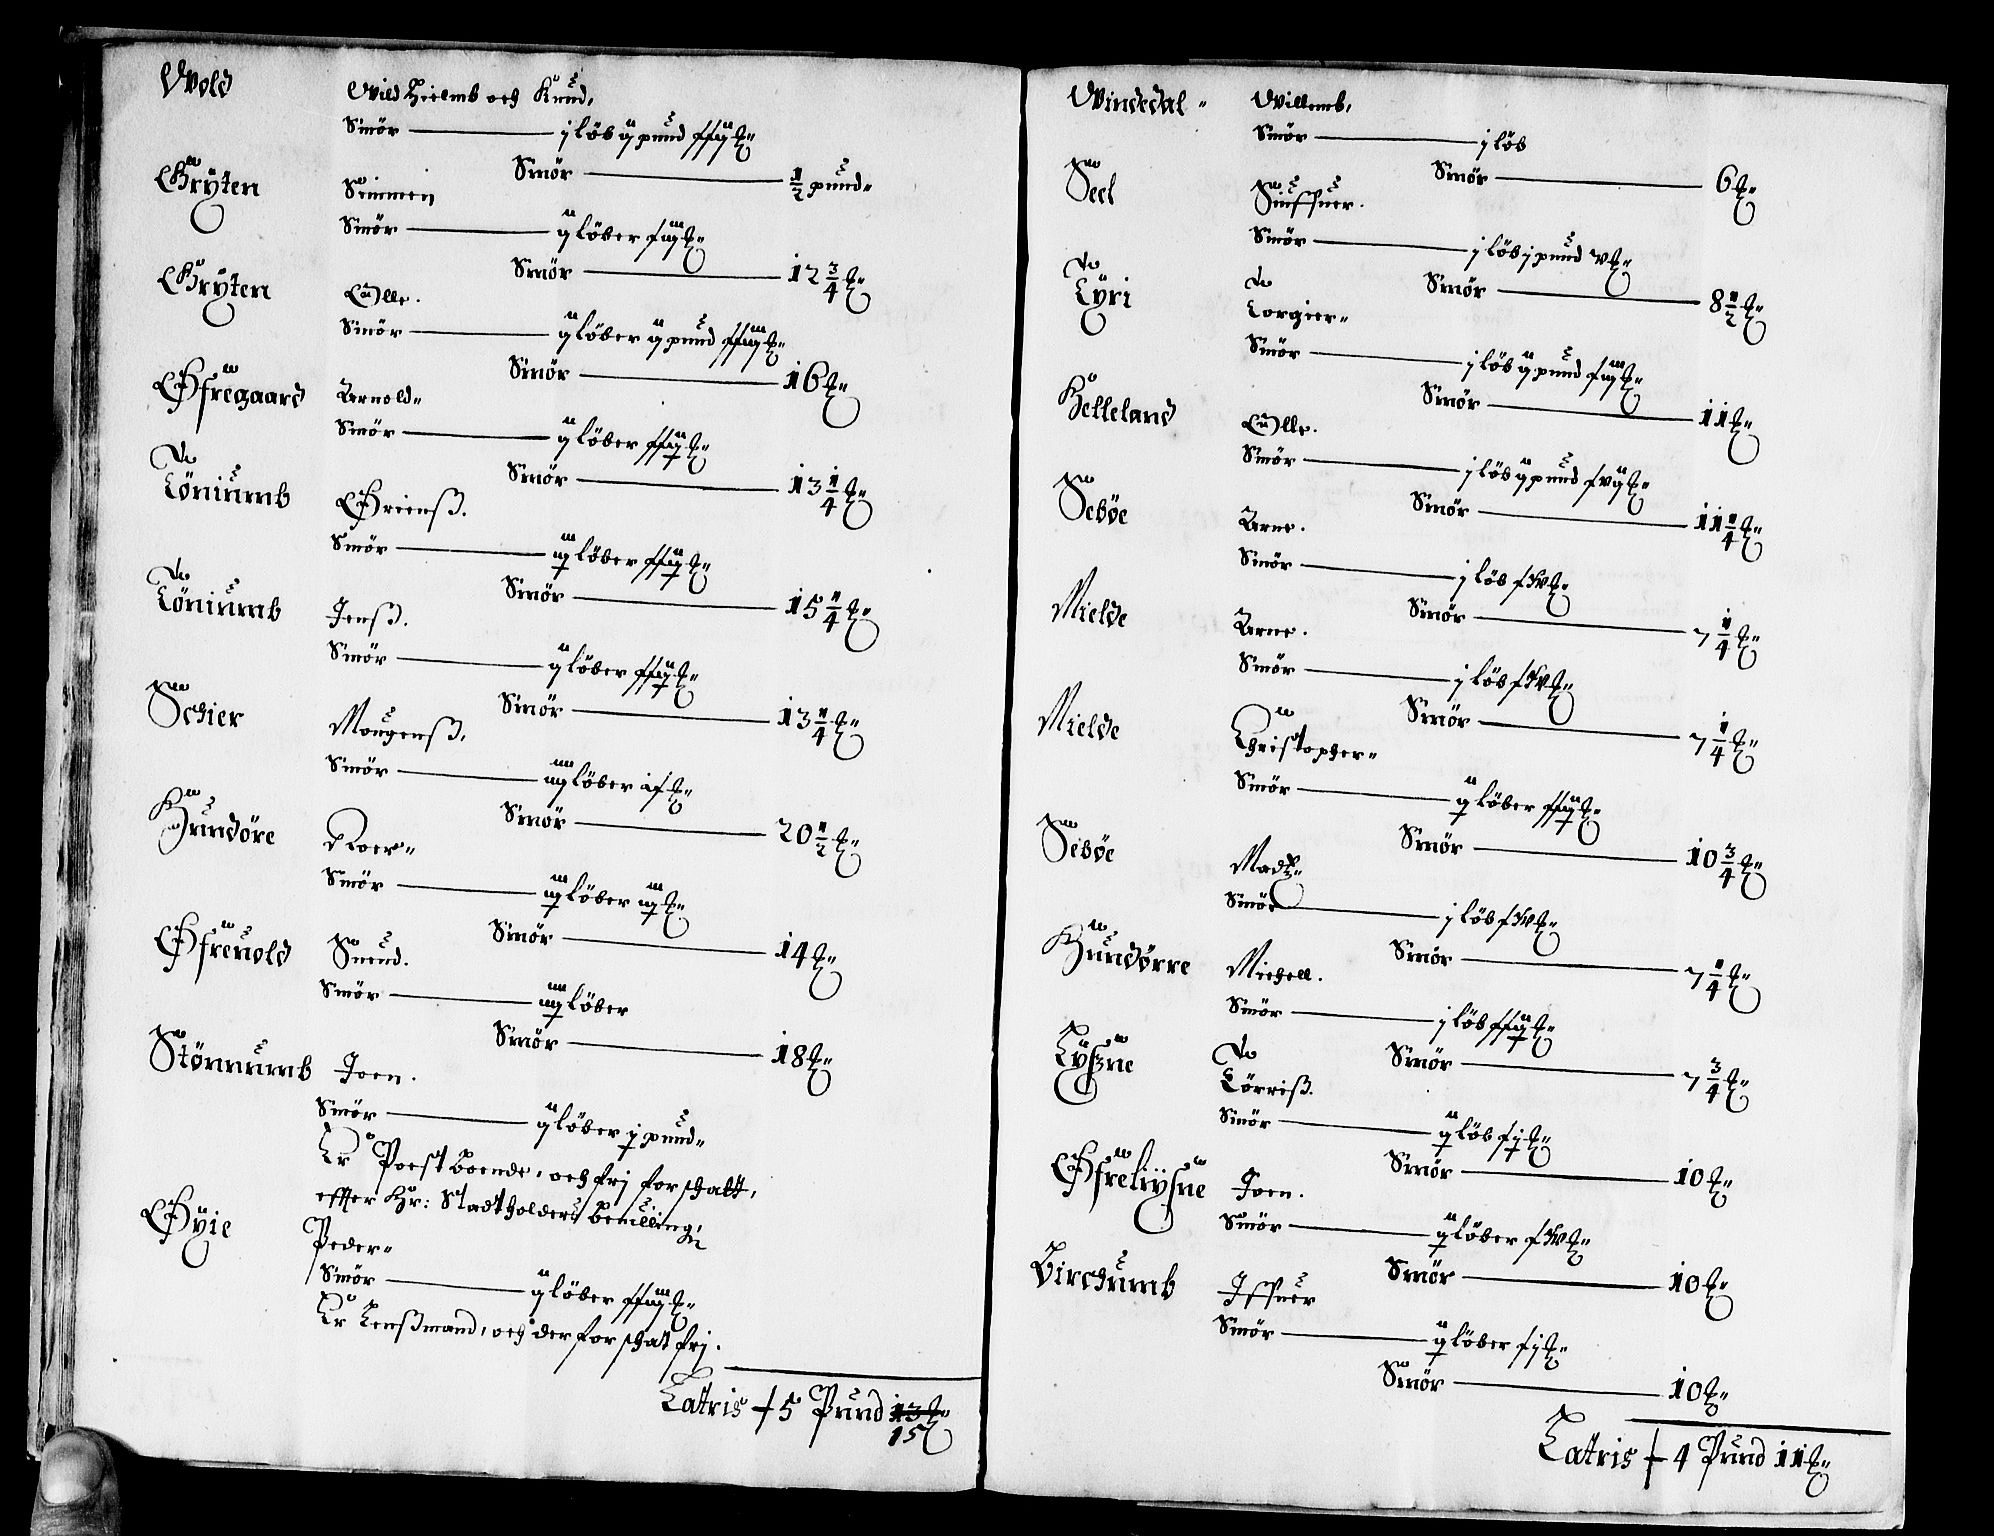 Wold Wilhielmb och Knud,
Smör — j löb ij pund
Smör — 1/2 pund
Gryten Simmen
Smör — ij löber
Smör — 12 3/4 ℔
Gryten Olle.
Smör — ij löber ij pund
Smör — 16 ℔
Øfregaard Arnold
Smör — ij löber
Smör — 13 1/4 ℔
Töniumb Griensß.
Smör — iij löber
Smör — 15 1/4 ℔
Töniumb Jenß.
Smör — ij löber
Smör — 13 1/4 ℔
Schier Mougenß,
Smör — iiij löber
Smör — 20 1/2 ℔
Hundöre
Smör — iij löber iij ℔
Smör — 14 ℔
Øfreuold Suend.
Smör — iiij löber
Smör — 18 ℔
Stönnumb Joen.
Smör — ij löber j pund
Er Post boende, och frj for schatt,
effter Hr: Stadtholders beuilling
Øyie Peder
Smör — ij löber
Er Lenßmand, och der for schat frj.
Latris 5 Pund 13 ℔
15
Windedal Willemb,
Smör — j löb
Smör — 6 ℔
Seel Siuffuer.
Smör — j löb j pund v ℔
Smör — 8 1/2 ℔
Tyri Torgier
Smör — j löb ij pund
Smör — 11 ℔
Helleland Olle.
Smör — j löb ij pund
Smör — 11 1/4 ℔
Sebøe Arne.
Smör — j löb
Smör — 7 1/4 ℔
Mielde Arne.
Smör — j löb
Smör — 7 1/4 ℔
Mielde Christopher
Smör — ij löber
Smör — 10 3/4 ℔
Sebøe Madz
Smör — j löb
Smör — 7 1/4 ℔
Hundörre Michell.
Smör — j löb
Smör — 7 3/4 ℔
Lysne Törriß.
Smör — ij löb
Smör — 10 ℔
Øfreliysne Joen.
Smör — ij löber
Smör — 10 ℔
Birchumb Iffuer
Smör — ij löber
Smör — 10 ℔
Latris 4 Pund 11 ℔